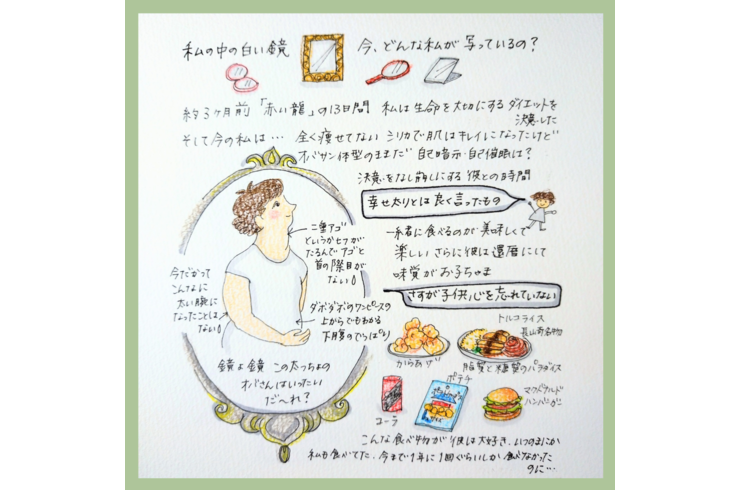 私の中の白い鏡 今、どんな私が写っているの？
約3ヶ月前「赤い龍」の13日間 私は生命を大切にするダイエットを
決意した
そして今の私は… 全く痩せてない シリカで肌はキレイになったけど
オバサン体型のままだ 自己暗示・自己催眠は？
決意をなし崩しにする彼との時間
幸せ太りとは良く言ったもの
一緒に食べるのが美味しくて
楽しい さらに彼は還暦にして
味覚がお子ちゃま
さすが子供心を忘れていない
二重アゴ
というかセフが
たるんでアゴと
首の際目が
ない
今だかつて
こんなに
太い腕に
なったことは
ない
ダボダボのワンピースの
上からでもわかる
下腹のでっぱり
鏡よ鏡 この太っちょの
オバさんはいったい
だ〜れ？
からあげ
トルコライス
長崎名物
脂質と糖質のパラダイス
コーラ
ポテチ
マクドナルド
ハンバーガー
こんな食べ物が彼は大好き、いつのまにか
私も食べてた、今まで1年に1回ぐらいしか食べなかった
のに…